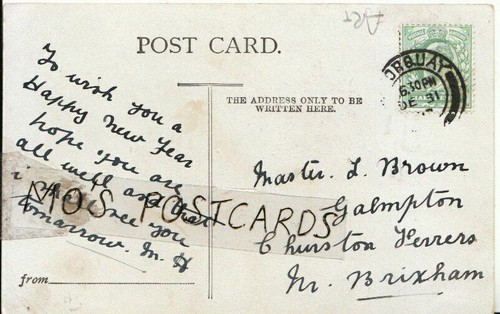 POST CARD.
To wish you a
Happy New Year
hope you are
all well and that
i shall see you
tomorrow. M. H
from
THE ADDRESS ONLY TO BE
WRITTEN HERE.
TORQUAY
6.30 PM
DE 31
Master. L. Brown
Galmpton
Churston Ferrers
Nr. Brixham
MO'S POSTCARDS